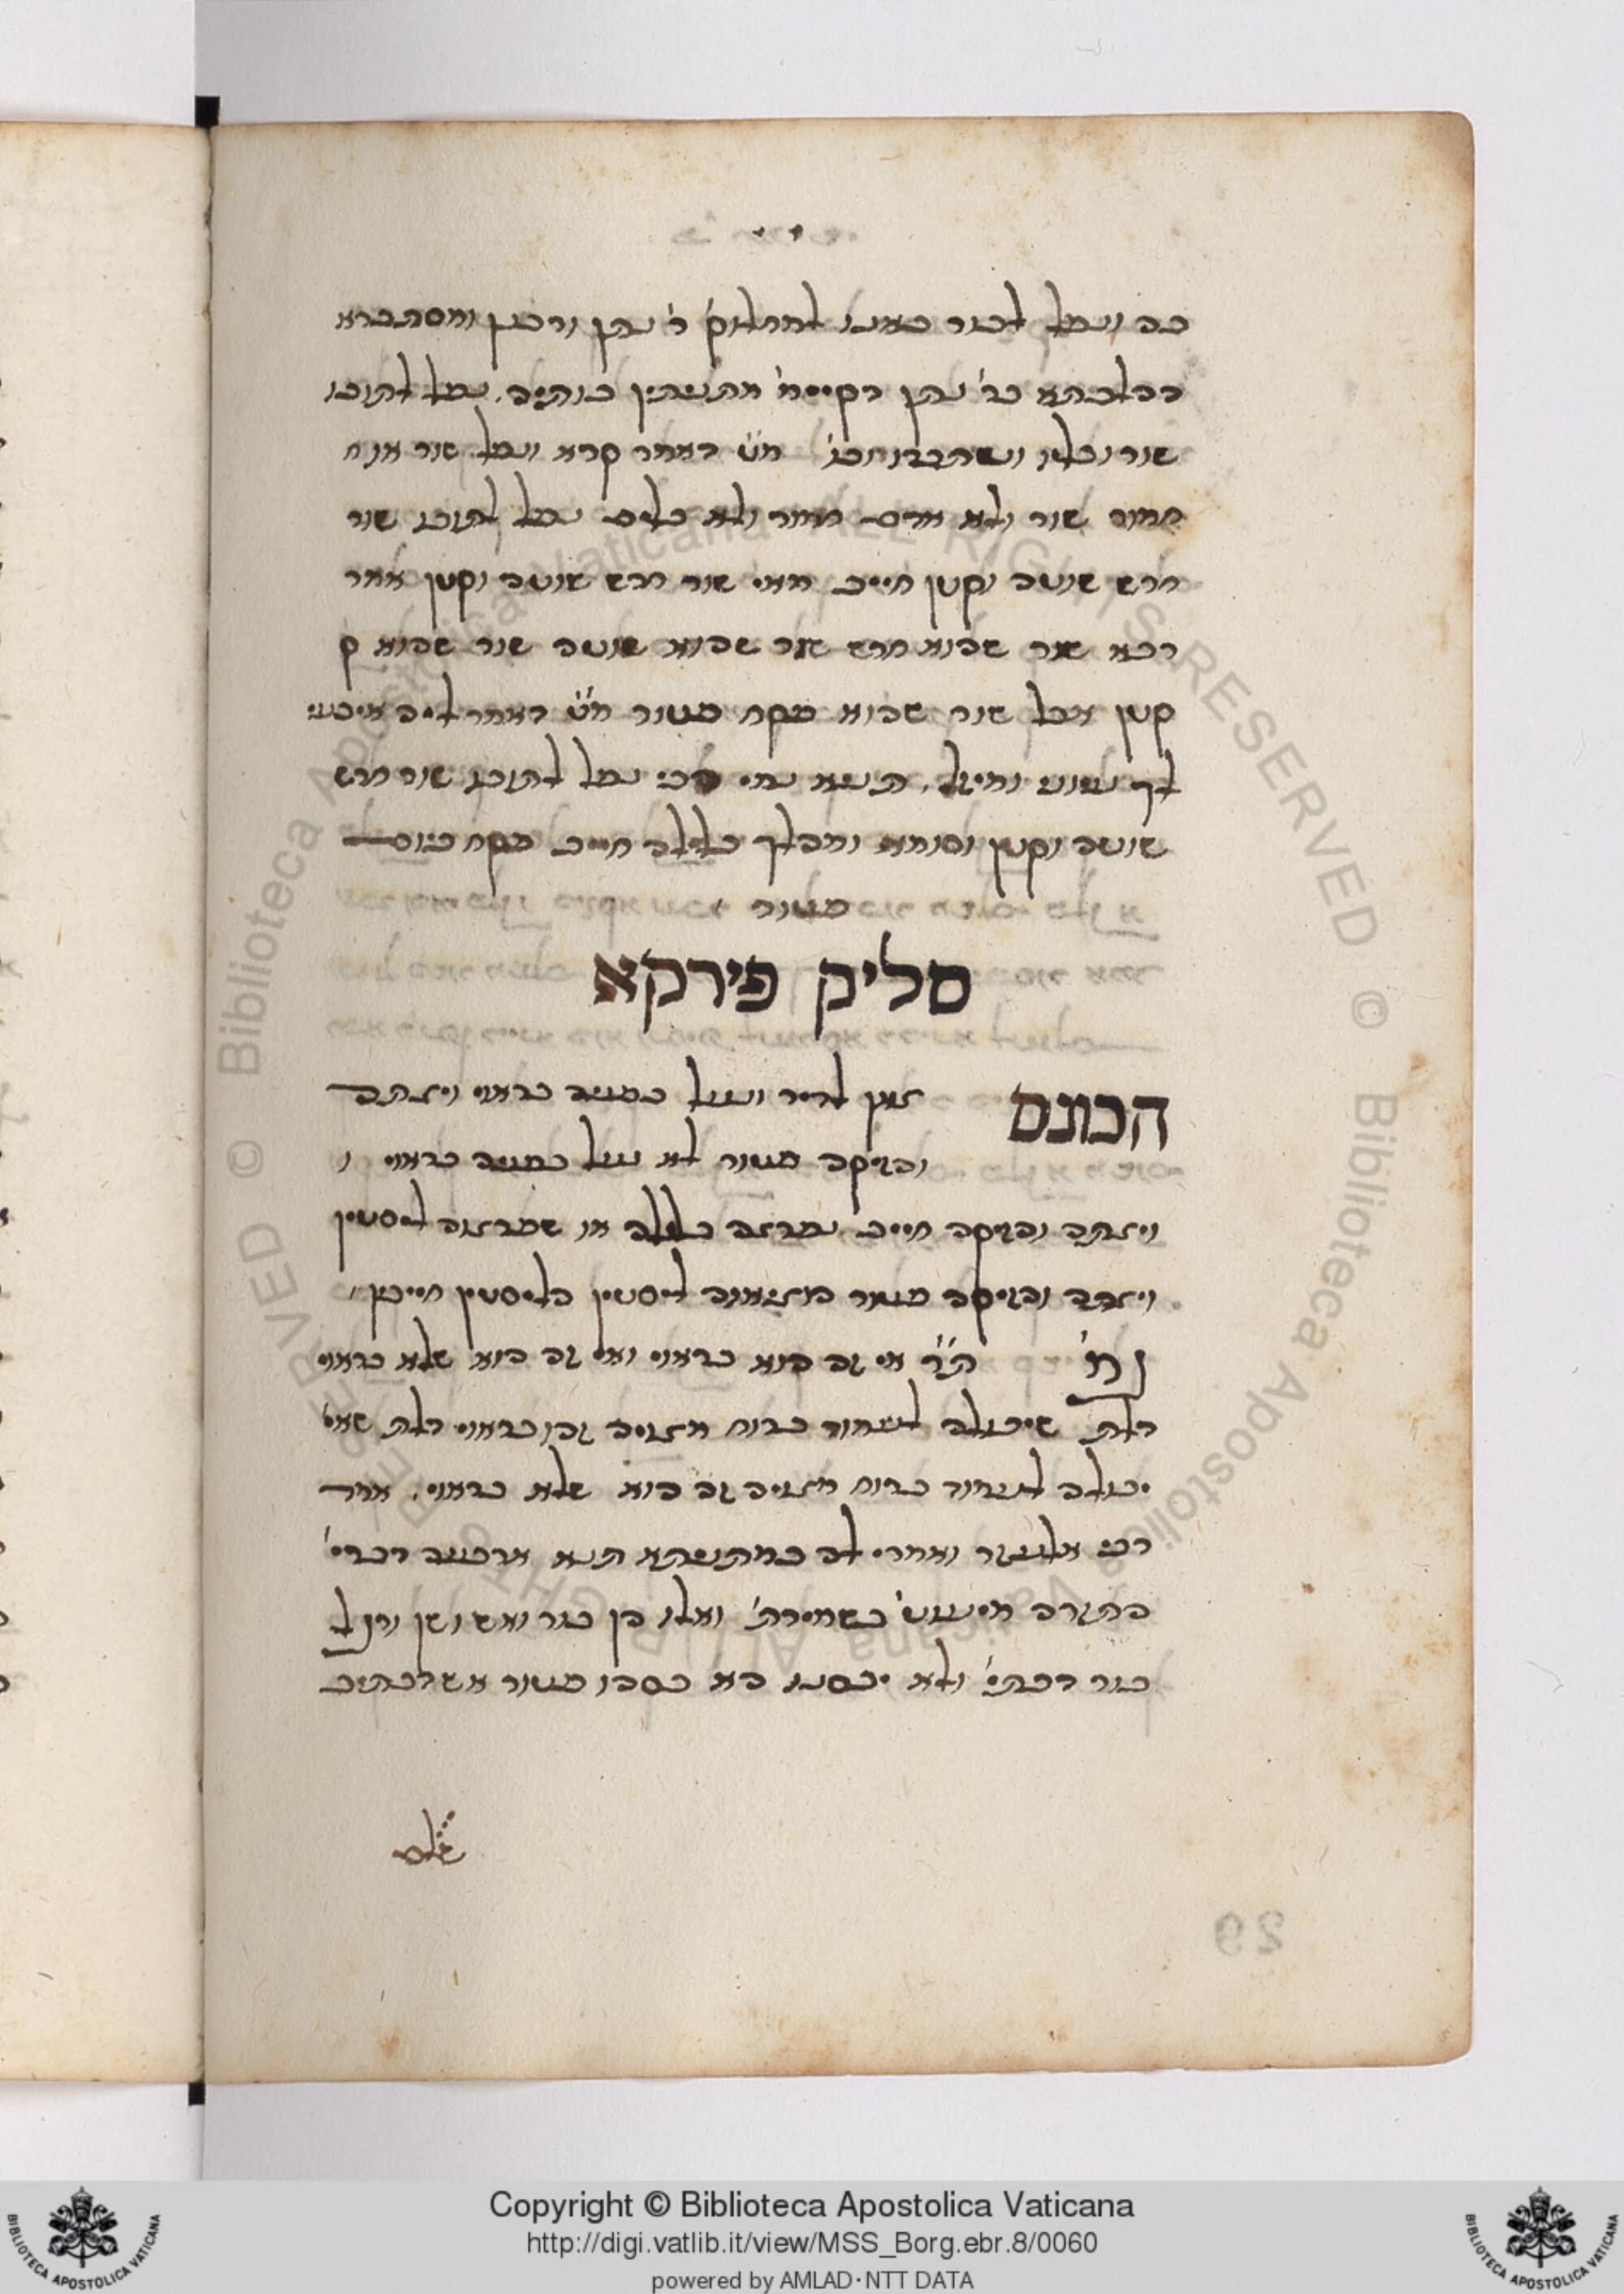 בה ונפל לבור באנו למחלוק' ר' נתן ורבנן ומסתברא
דהלכתא כר' נתן דקיימ' מתניתין כותיה. נפל לתוכו
שור וכליו ונשתברו וכו' מ"ט דאמר קרא ונפל שור או ח
חמור שור ולא אדם חמור ולא כלים נפל לתוכו שור
חרש שוטה וקטן חייב מאי שור חרש שוטה וקטן אמר
רבא שור שהוא חרש שור שהוא שוטה שור שהוא ק
קטן אבל שור שהוא פקח פטור מ"ט דאמר ליה איבעי
לך עיוני ומיזל. תניא נמי הכי נפל לתוכו שור חרש
שוטה וקטן וסומא ומהלך בלילה חייב פקח ביום
פטור
סליק פירקא
הכונס צאן לדיר ונעל בפניה כראוי ויצתה
והזיקה פטור לא נעל בפניה כראוי ו
ויצתה והזיקה חייב נפרצה בלילה או שפרצוה ליסטין
ויצתה והזיקה פטור הוציאוה ליסטין הליסטין חייבין
גמ' ת"ר אי זה הוא כראוי ואי זה הוא שלא כראוי
דלת שיכולה לעמוד ברוח מצויה זהו כראוי דלת שאי'
יכולה לעמוד ברוח מצויה זה הוא שלא כראוי. אמר
רבי אלעזר ואמרי לה במתניתא תנא ארבעה דברי'
התורה מיעט' בשמירת' ואלו הן בור ואש ושן ורגל
בור דכתי' ולא יכסנו הא כסהו פטור אש דכתיב
שלם
29
Copyright © Biblioteca Apostolica Vaticana
http://digi.vatlib.it/view/MSS_Borg.ebr.8/0060
powered by AMLAD·NTT DATA